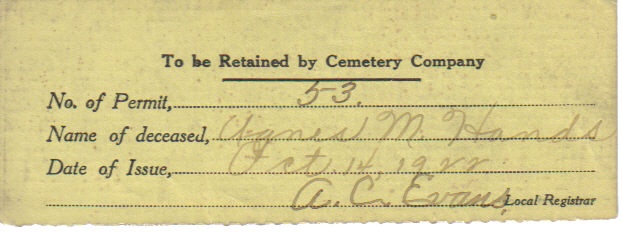 To be Retained by Cemetery Company
No. of Permit, 53.
Name of deceased, Agnes M. Hands
Date of Issue, Oct. 14, 1922
A. C. Evans, Local Registrar